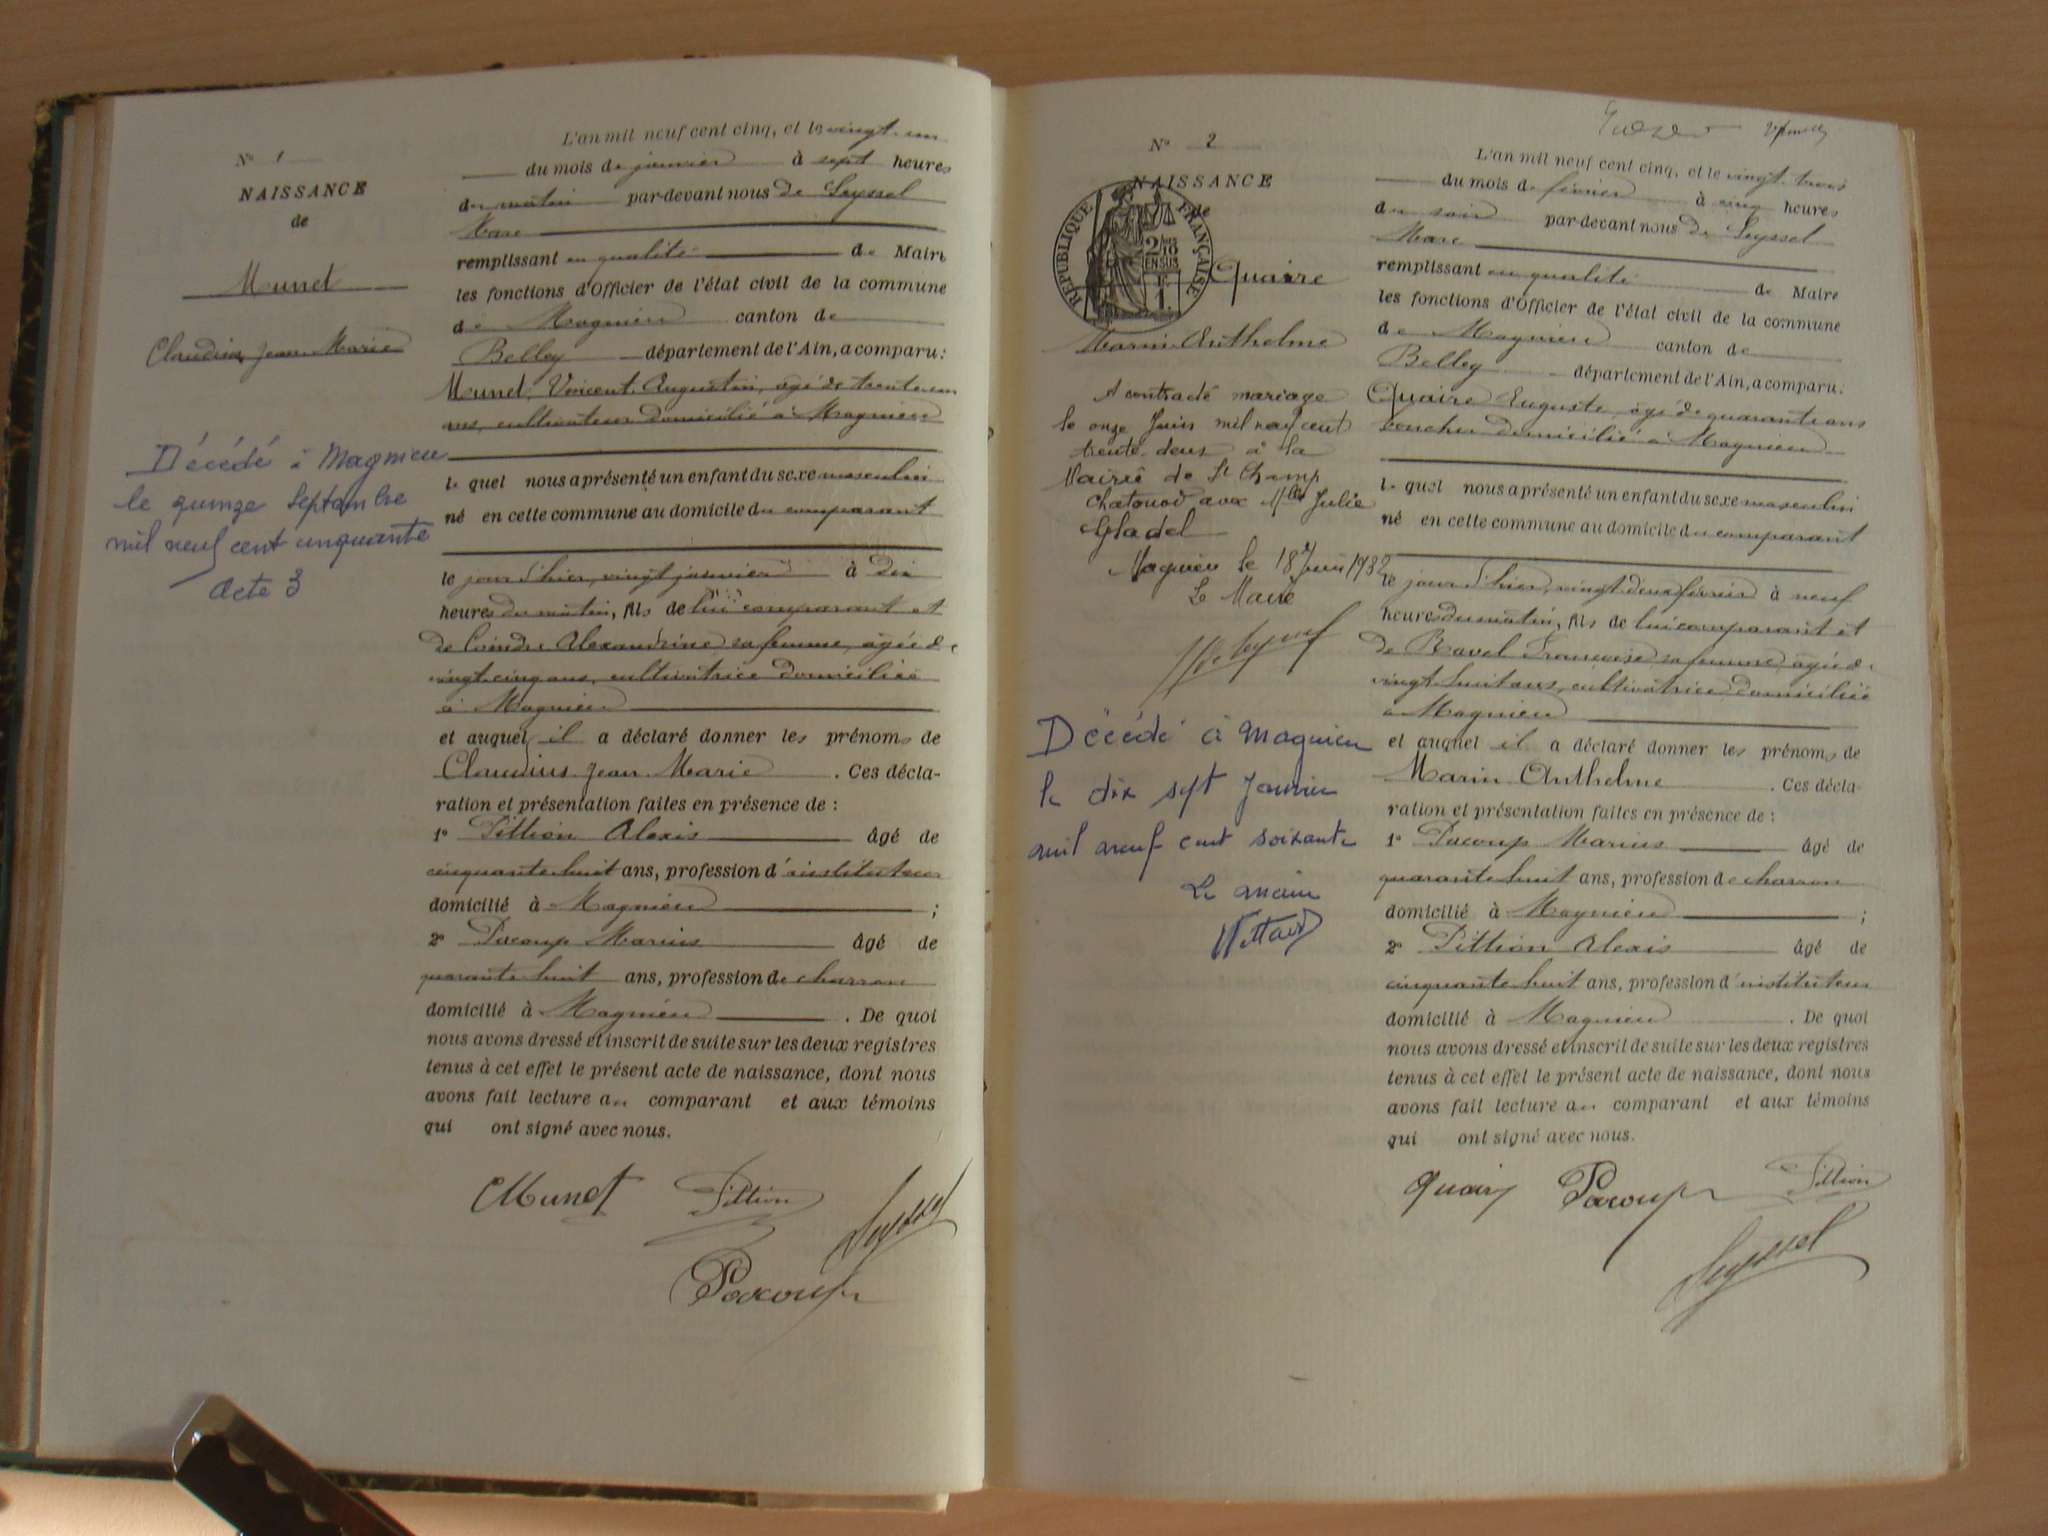 N° 1
NAISSANCE
de
Munet
Claudius Jean Marie
Décédé à Magnieu
le quinze Septembre
mil neuf cent cinquante
Acte 3
L'an mil neuf cent cinq, et le vingt-un
du mois de janvier à sept heures
du matin par-devant nous de Seyssel
Marc
remplissant en qualité de Maire
les fonctions d'Officier de l'état civil de la commune
de Magnieu canton de
Belley département de l'Ain, a comparu :
Munet Vincent Augustin, âgé de trente un
ans, cultivateur domicilié à Magnieu
le quel nous a présenté un enfant du sexe masculin
né en cette commune au domicile du comparant
le jour d'hier, vingt janvier à dix
heures du matin, fils de lui comparant et
de Alexandrine sa femme, âgée de
vingt-cinq ans, cultivatrice domiciliée
à Magnieu
et auquel il a déclaré donner les prénoms de
Claudius Jean Marie . Ces décla-
ration et présentation faites en présence de :
1° Pittion Alexis âgé de
cinquante huit ans, profession d'instituteur
domicilié à Magnieu ;
2° Pacoup Marius âgé de
quarante huit ans, profession de charron
domicilié à Magnieu . De quoi
nous avons dressé et inscrit de suite sur les deux registres
tenus à cet effet le présent acte de naissance, dont nous
avons fait lecture au comparant et aux témoins
qui ont signé avec nous.
Munet Pittion
Seyssel
Pacoup
N° 2
NAISSANCE
de
RÉPUBLIQUE FRANÇAISE
2/10
EN SUS
1
Quaire
Marin Anthelme
A contracté mariage
le onze Juin mil neuf cent
trente deux à la
Mairie de St Champ
Chatonod avec Mlle Julie
Gladel
Magnieu le 18 Juin 1932
Le Maire
Décédé à Magnieu
le dix sept Janvier
mil neuf cent soixante
Le maire
L'an mil neuf cent cinq, et le vingt-trois
du mois de février à cinq heures
du soir par-devant nous de Seyssel
Marc
remplissant en qualité de Maire
les fonctions d'Officier de l'état civil de la commune
de Magnieu canton de
Belley département de l'Ain, a comparu :
Quaire Auguste, âgé de quarante ans
boucher domicilié à Magnieu
le quel nous a présenté un enfant du sexe masculin
né en cette commune au domicile du comparant
le jour d'hier, vingt deux février à neuf
heures du matin, fils de lui comparant et
de Ravel Françoise sa femme, âgée de
vingt huit ans, cultivatrice domiciliée
à Magnieu
et auquel il a déclaré donner les prénoms de
Marin Anthelme . Ces décla-
ration et présentation faites en présence de :
1° Pacoup Marius âgé de
quarante huit ans, profession de charron
domicilié à Magnieu ;
2° Pittion Alexis âgé de
cinquante huit ans, profession d'instituteur
domicilié à Magnieu . De quoi
nous avons dressé et inscrit de suite sur les deux registres
tenus à cet effet le présent acte de naissance, dont nous
avons fait lecture au comparant et aux témoins
qui ont signé avec nous.
Quaire Pacoup Pittion
Seyssel